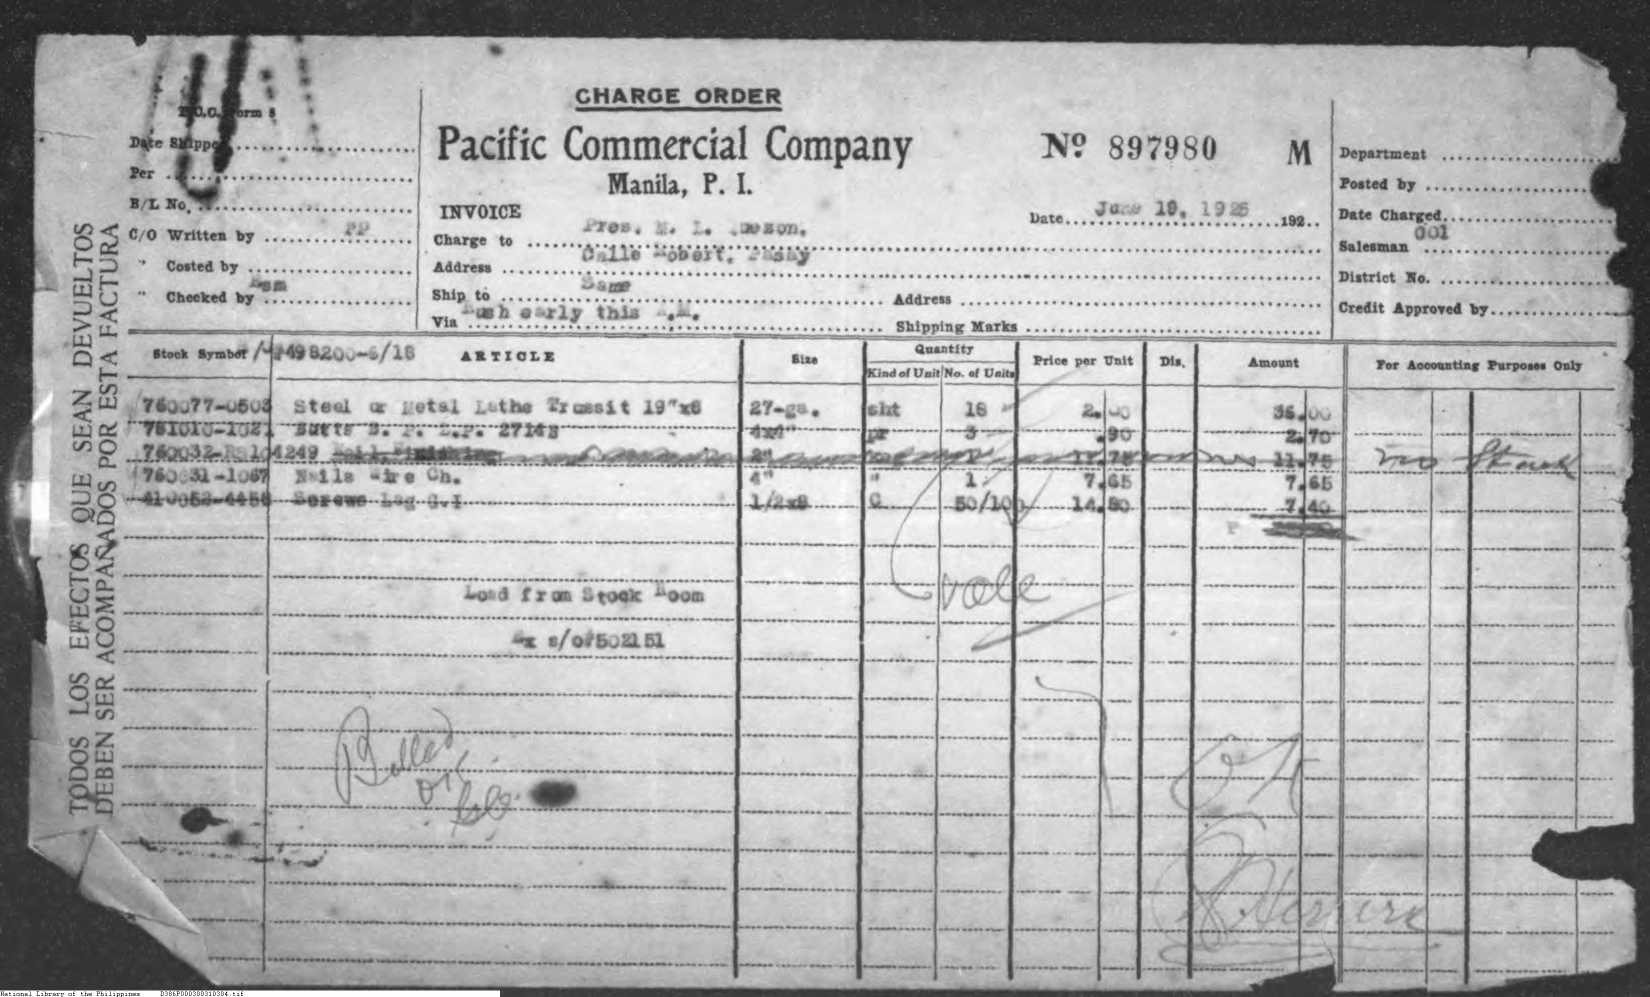 CHARGE ORDER
Pacific Commercial Company
Manila, P. I.
Nº 897980 M
INVOICE
Date June 19, 1925 192
Charge to Pres. M. L.
Address Calle Robert, Pasay
Ship to Same
Address
Via Rush early this A.M.
Shipping Marks
P.C.C. Form 8
Date Shipped
Per
B/L No.
C/O Written by PP
" Costed by
" Checked by
Department
Posted by
Date Charged
Salesman 001
District No.
Credit Approved by
TODOS LOS EFECTOS QUE SEAN DEVUELTOS
DEBEN SER ACOMPAÑADOS POR ESTA FACTURA
Stock Symbol ARTICLE Size Quantity Price per Unit Dis. Amount For Accounting Purposes Only
Kind of Unit No. of Units
498200-6/18
760077-0503 Steel or Metal Lathe 19"x8 27-ga. sht 18 2.00 36.00
Butts 27148 4x4" pr 3 .90 2.70
4249 Nail Finishing 2" 11.75 11.75 no Stock
760031-1067 Nails Wire Ch. 4" " 1 7.65 7.65
410052-4456 Screws Lag G.I 1/2x8 C 50/100 14.80 7.40
Load from Stock Room
Ex s/o#502151
Billed
OK
Herrera
National Library of the Philippines D386P000300310304.tif